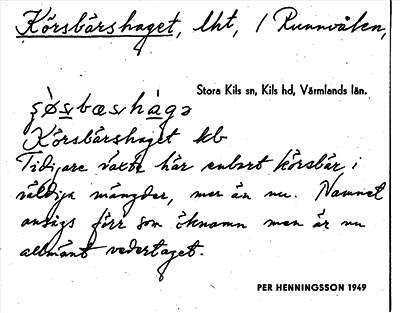 Körsbärshaget, lht, i Runnvålen,
Stora Kils sn, Kils hd, Värmlands län.
Körsbärshaget kb
Tidigare växte här enbart körsbär i
väldiga mängder, mer än nu. Namnet
ansågs förr som öknamn men är nu
allmänt vedertaget.
PER HENNINGSSON 1949